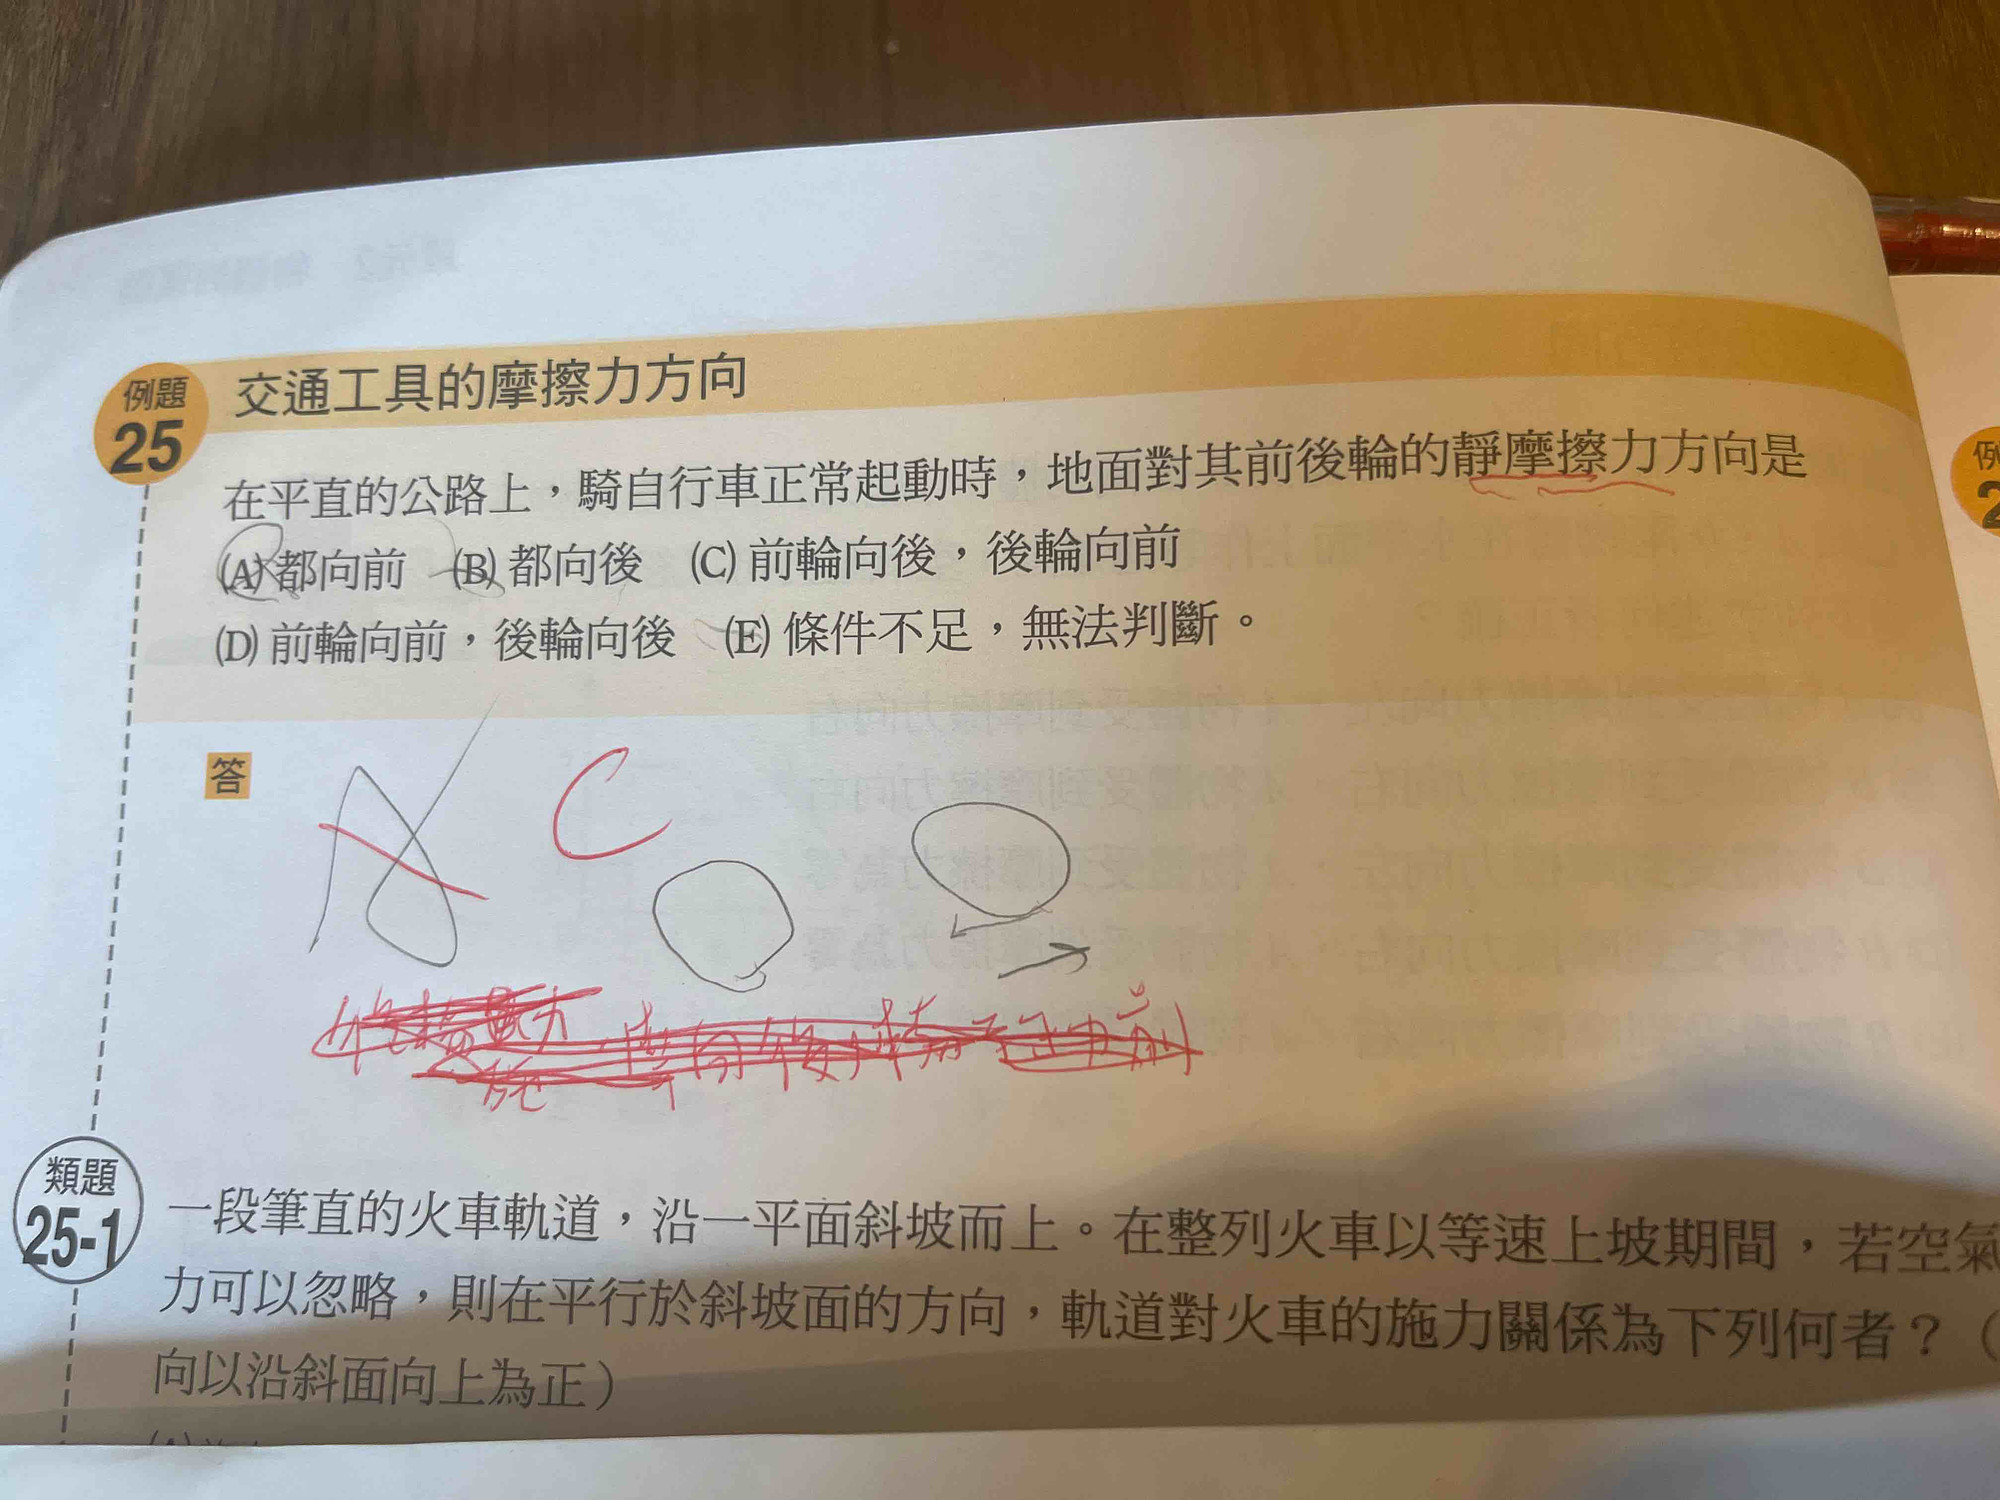 例題
25
交通工具的摩擦力方向
在平直的公路上，騎自行車正常起動時，地面對其前後輪的靜摩擦力方向是
(A) 都向前 (B) 都向後 (C) 前輪向後，後輪向前
(D) 前輪向前，後輪向後 (E) 條件不足，無法判斷。
答
A C
類題
25-1
一段筆直的火車軌道，沿一平面斜坡而上。在整列火車以等速上坡期間，若空氣
力可以忽略，則在平行於斜坡面的方向，軌道對火車的施力關係為下列何者？（
向以沿斜面向上為正）
例
2